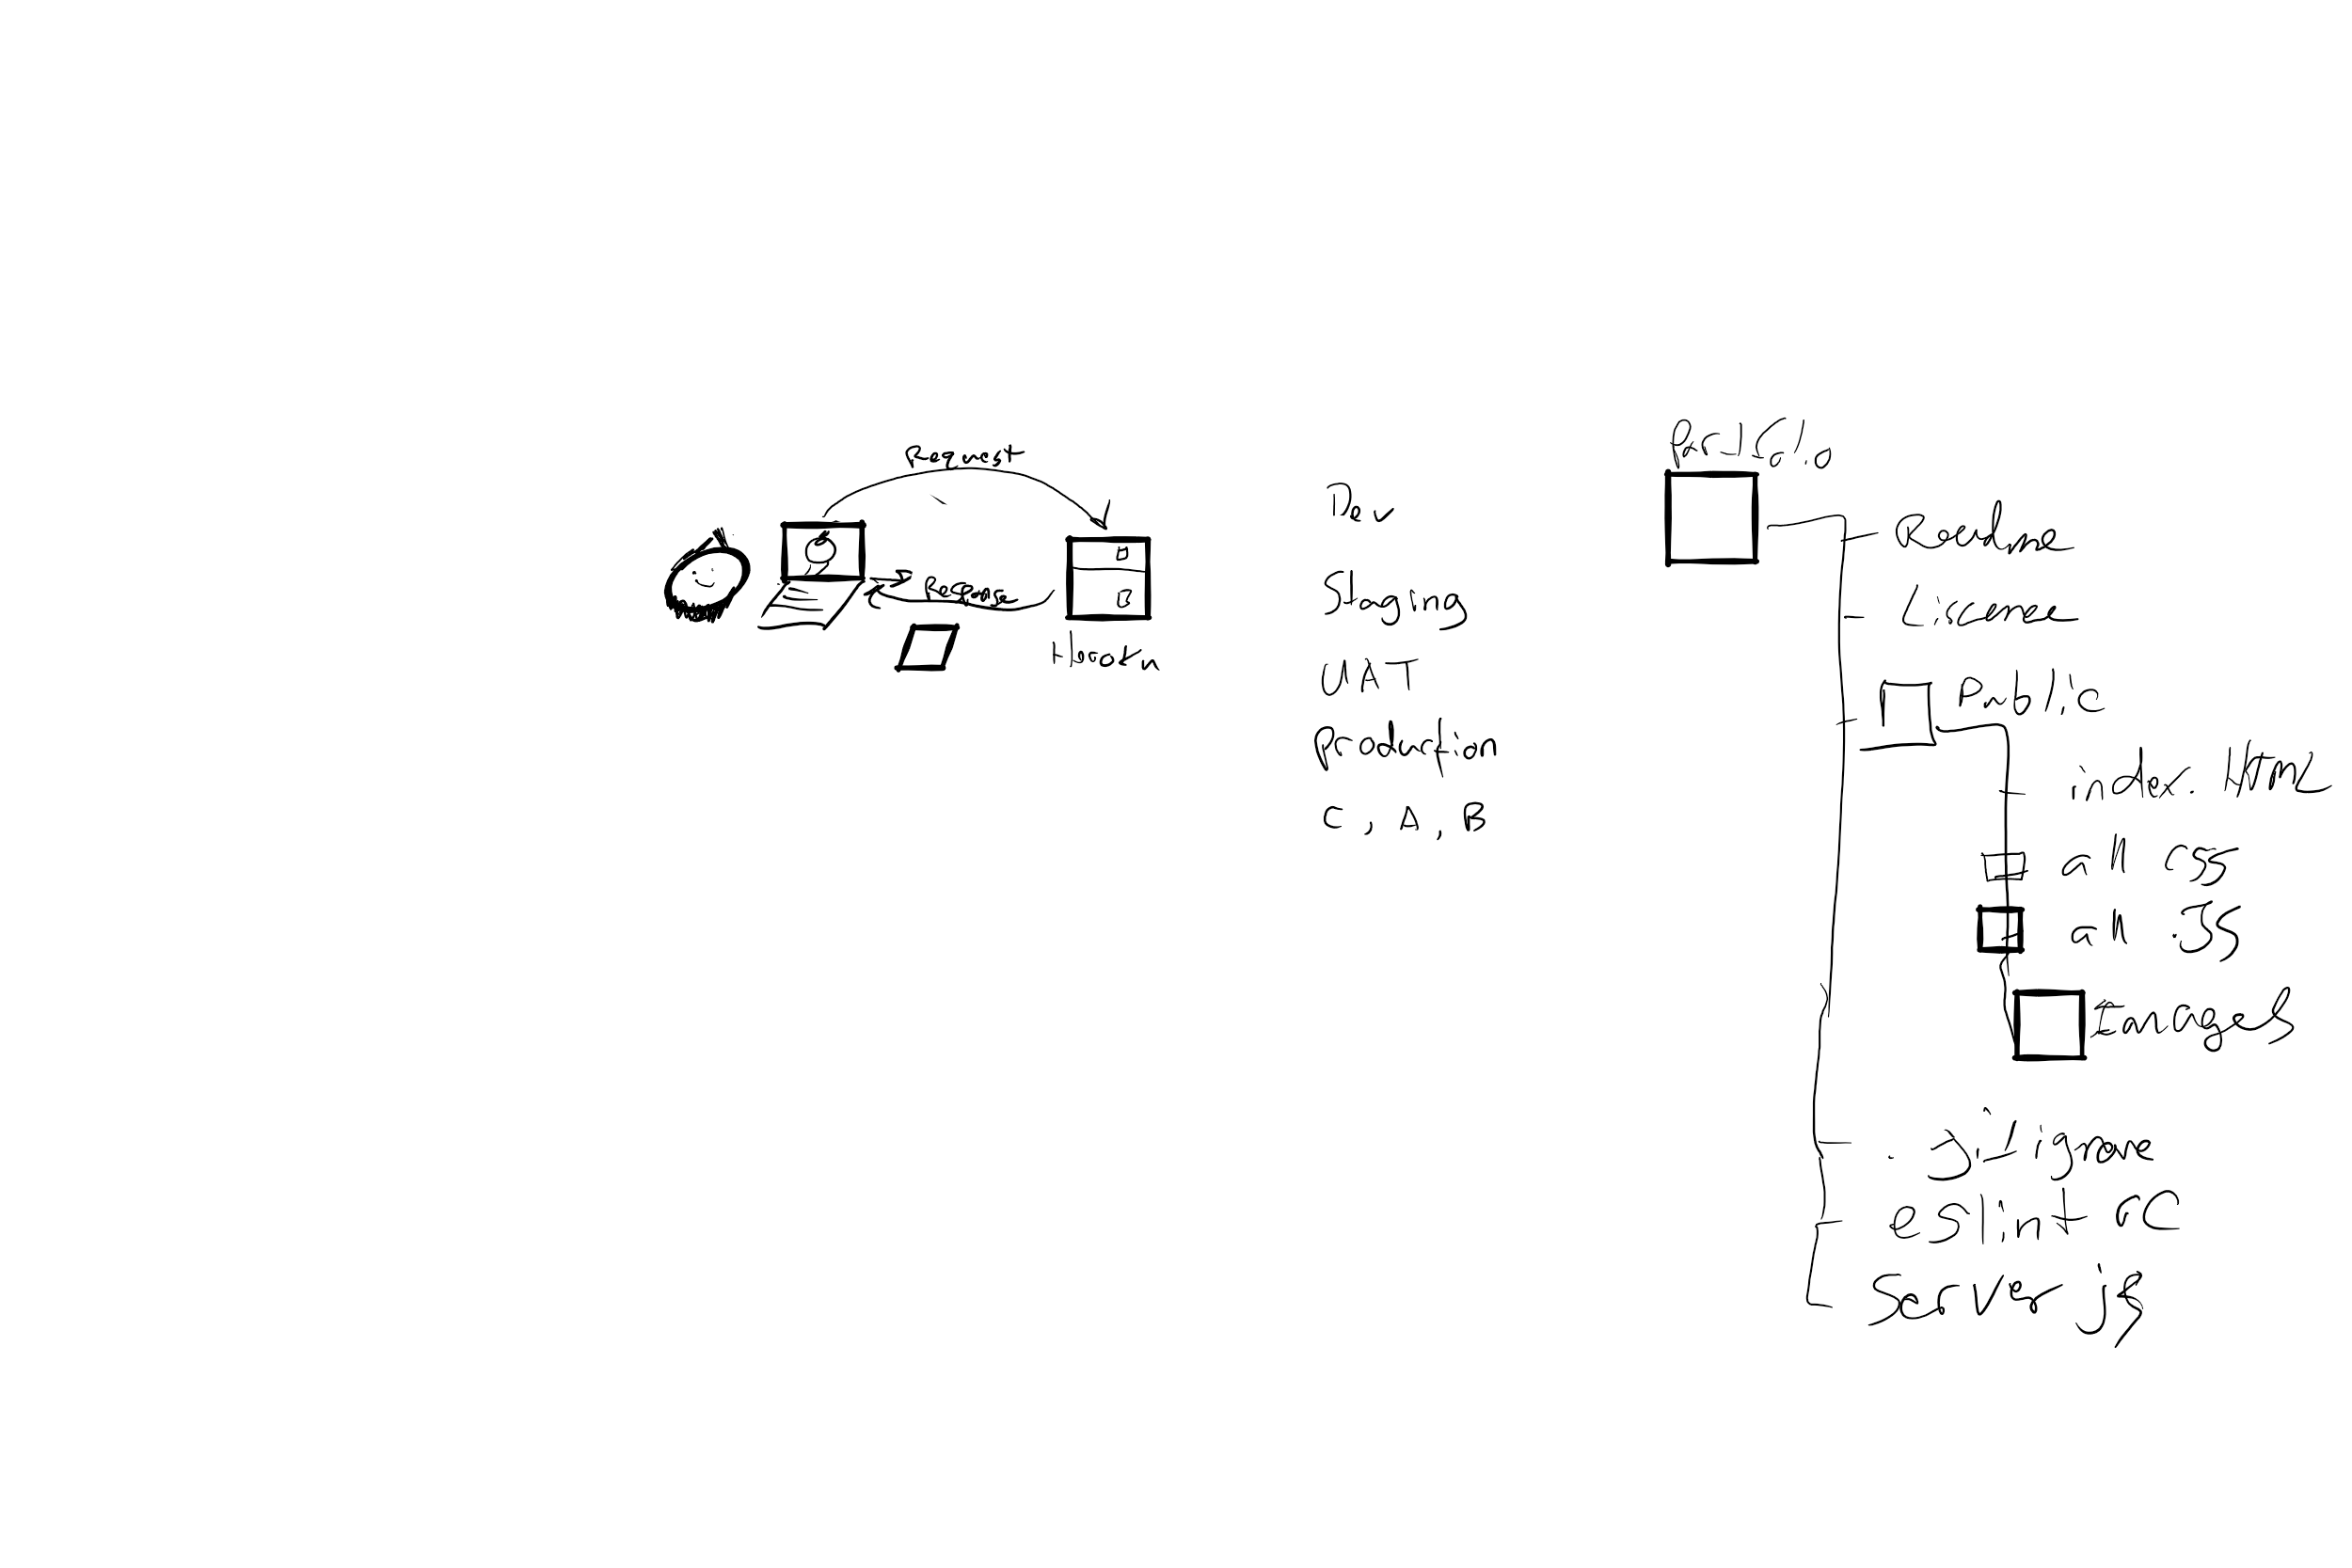 Request
Response
Heroku
Dev
Staging
UAT
Production
C, A, B
Portfolio
Readme
License
Public
index. HTML
all css
all .JS
Images
. gitignore
eslint rC
Server js